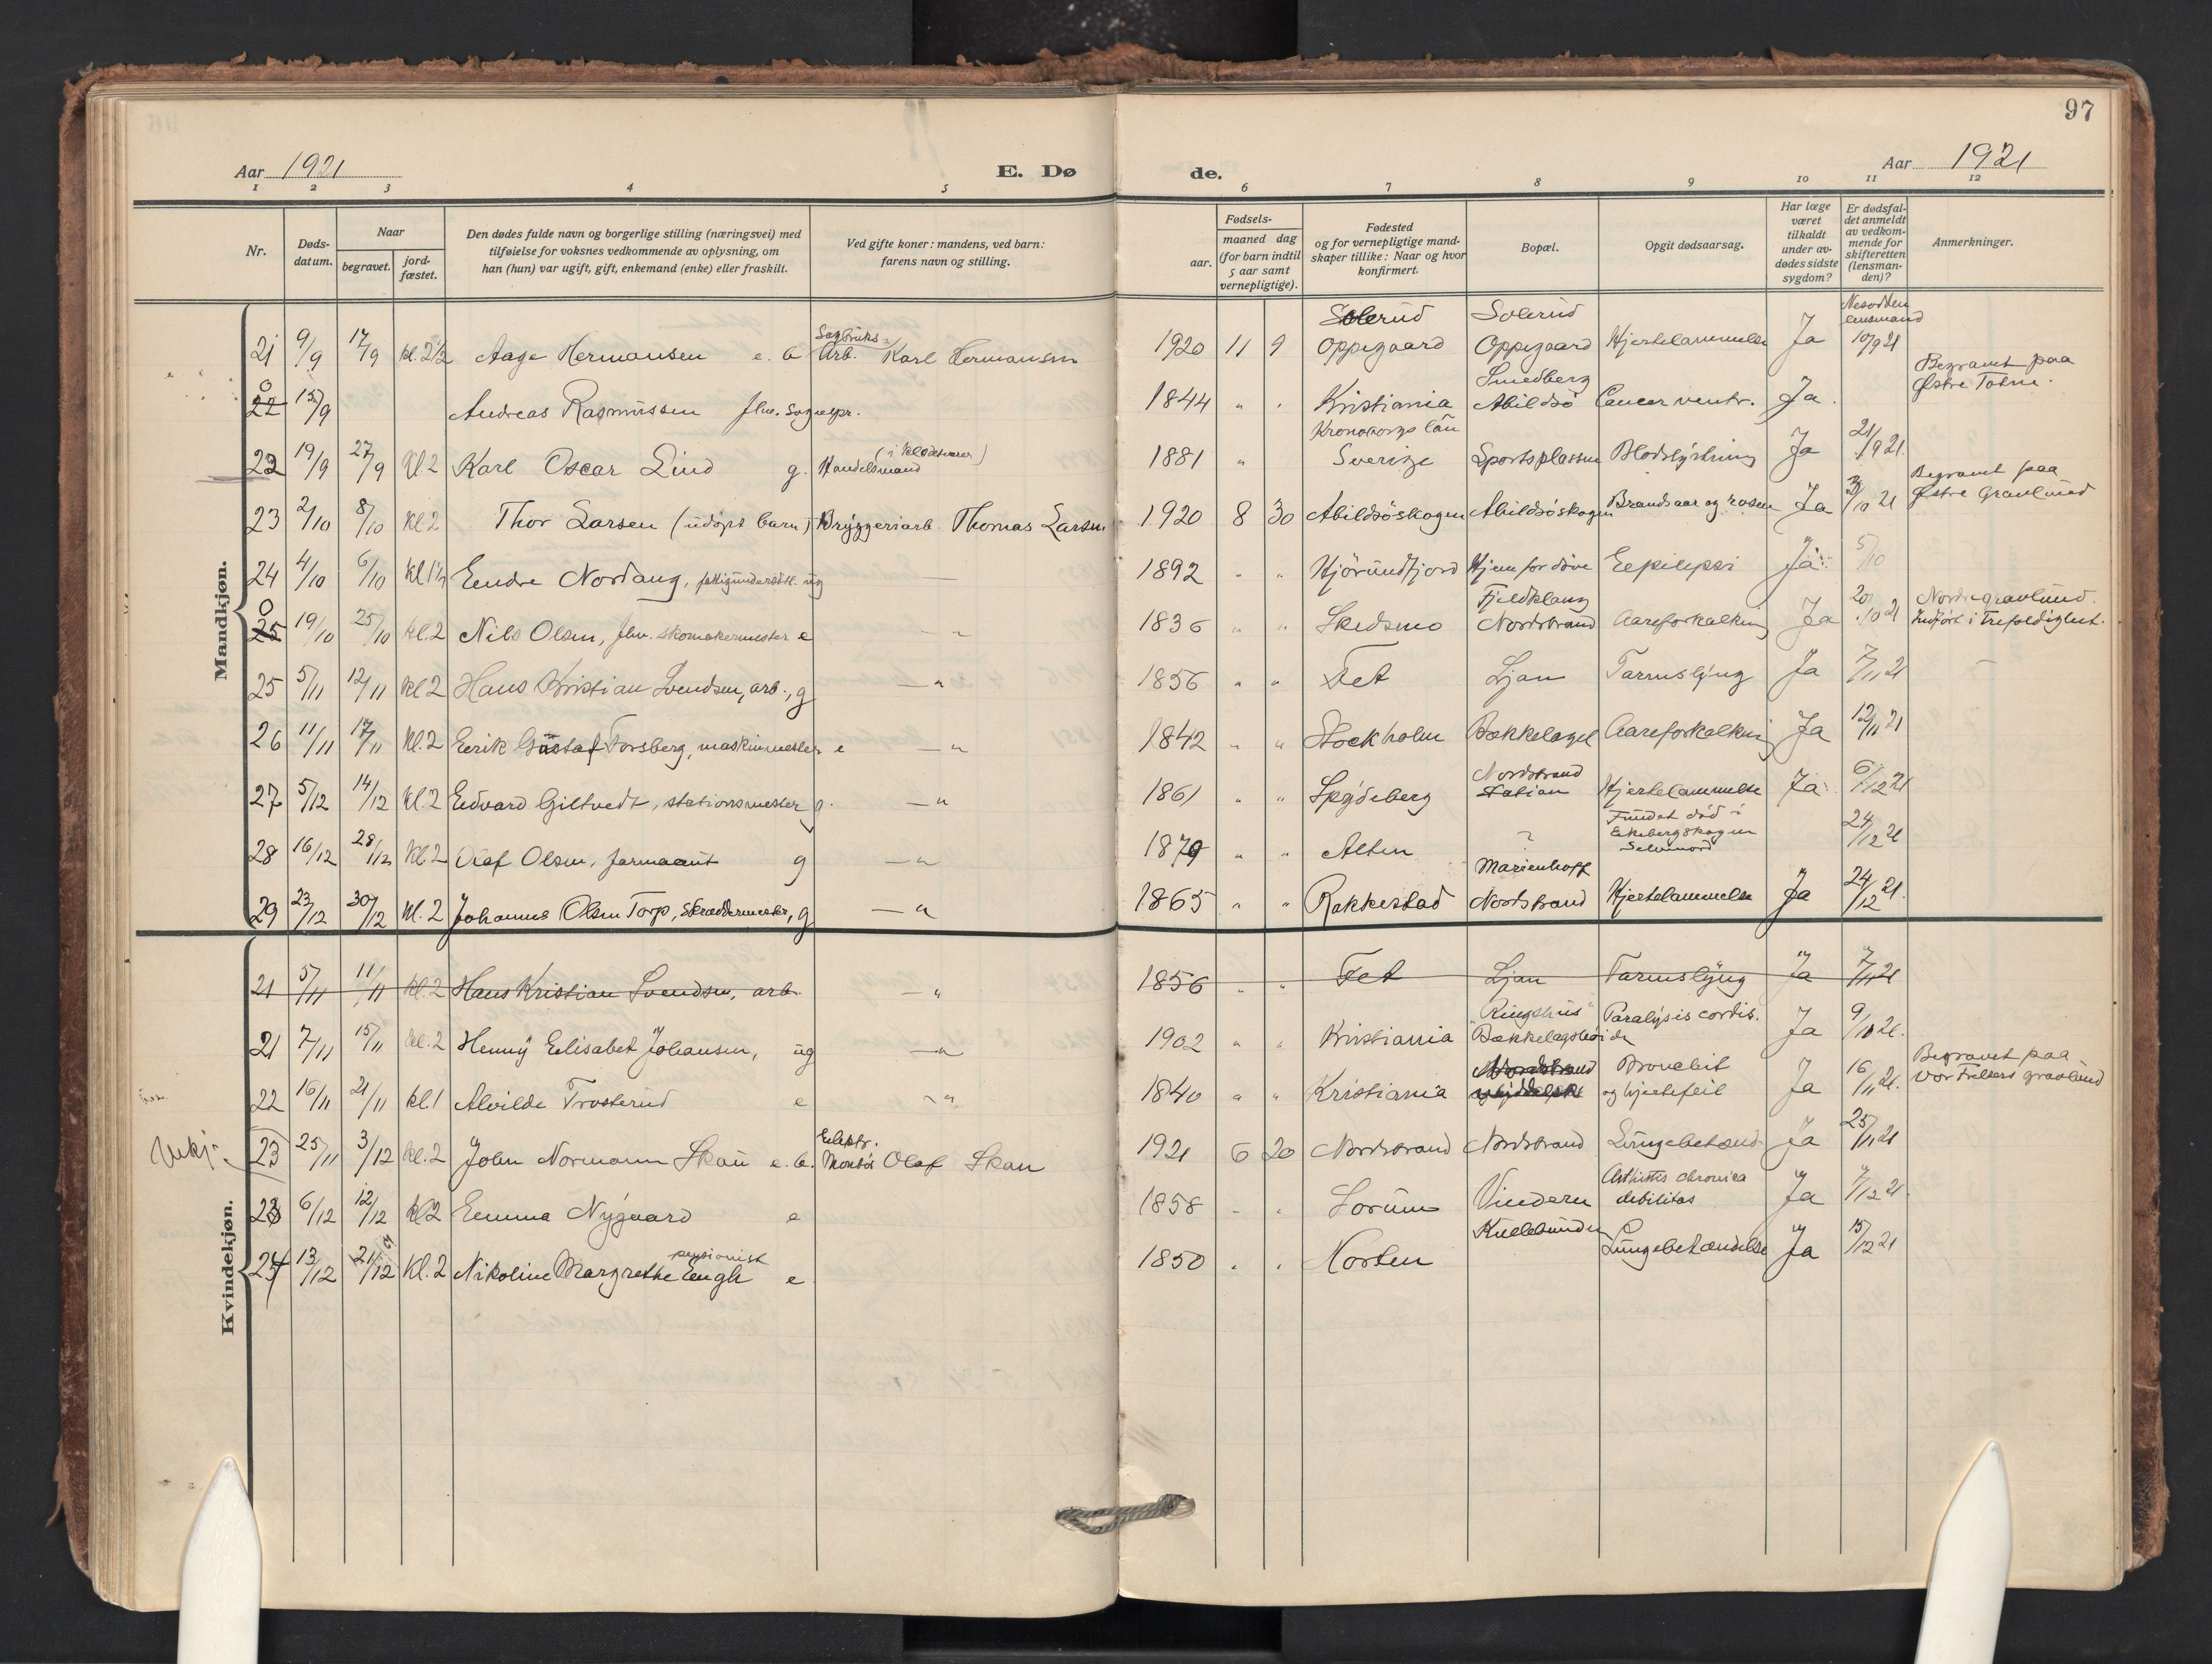 97
Aar 1921 E. Dø de. Aar 1921
1 2 3 4 5 6 7 8 9 10 11 12
Nr. Døds-datum. Naar begravet. jord-fæstet. Den dødes fulde navn og borgerlige stilling (næringsvei) med tilføielse for voksnes vedkommende av oplysning, om han (hun) var ugift, gift, enkemand (enke) eller fraskilt. Ved gifte koner: mandens, ved barn: farens navn og stilling. Fødsels- aar. maaned dag (for barn indtil 5 aar samt vernepligtige). Fødested og for vernepligtige mand-skaper tillike: Naar og hvor konfirmert. Bopæl. Opgit dødsaarsag. Har læge været tilkaldt under av-dødes sidste sygdom? Er dødsfal-det anmeldt av vedkom-mende for skifteretten (lensman-den)? Anmerkninger.
Mandkjøn.
21 9/9 17/9 kl. 2½ Aage Hermansen e. b Sagbruks-Arb. Karl Hermansen 1920 11 9 Solerud Oppegaard Solerud Oppegaard Hjertelammelse Ja Nesodden lensmand 10/9 21
0 22 15/9 Andreas Rasmussen fhv. Sognepr. 1844 " " Kristiania Smedberg Abildsö Cancer ventr. Ja. Begravet paa Østre Toten.
22 19/9 27/9 Kl. 2 Karl Oscar Lind g. Handelsmand 1881 " Kronobergs län Sverige Sportsplassen Blodstyrtning Ja 21/9 21.
23 2/10 8/10 kl 2 Thor Larsen (udöpt barn) Bryggeriarb. Thomas Larsen 1920 8 30 Abildsöskogen Abildsöskogen Brandsaar og rosen Ja 3/10 21 Begravet paa Østre Gravlund
24 4/10 6/10 Kl 1½ Endre Nordang, fattigunderstöt. ug — 1892 " " Hjörundfjord Hjem for döve Eepilepsi Ja 5/10
0 25 19/10 25/10 kl. 2 Nils Olsen, fhv. skomakermester e " 1836 " " Skedsmo Fjeldklang Nordstrand Aareforkalkning Ja 20/10 21 Nordre gravlund. Indført i Trefoldighet.
25 5/11 12/11 kl 2 Hans Kristian Svendsen, arb., g — " 1856 " " Fet Ljan Tarmslyng Ja 7/11 21
26 11/11 17/11 Kl. 2 Eerik Gustaf Forsberg, maskinmester e — " 1842 " " Stockholm Bækkelaget Aareforkalkning Ja 12/11 21
27 5/12 14/12 Kl. 2 Eedvard Giltvedt, stationsmester g. — " 1861 " " Spydeberg Nordstrand station Hjertelammelse Ja 6/12 21
28 16/12 28/12 Kl. 2 Olaf Olsen, farmaceut g — " 1879 " " Alten ? Fundet död i Eekebergskogen Selvmord 24/12 21
29 23/12 30/12 Kl. 2 Johannes Olsen Torp, Skræddermester, g — " 1865 " " Rakkestad Marienhoff Nordstrand Hjertelammelse Ja 24/12 21.
Kvindekjøn.
21 5/11 11/11 Kl. 2 Hans Kristian Svendsen, arb. — " 1856 " " Fet Ljan Tarmslyng Ja 7/11 21
21 7/11 15/11 kl. 2 Henny Eelisabet Johansen, ug — " 1902 " " Kristiania "Ringshus" Bækkelagshöiden Paralysis cordis. Ja 9/11 21.
22 16/11 21/11 kl. 1 Alvilde Trosterud e — " 1840 " " Kristiania Nordstrand Bronchit og hjertefeil Ja 16/11 21. Begravet paa Vor Frelsers gravlund
23 25/11 3/12 kl. 2 John Normann Skau e. b. Eelektr. Montör Olaf Skau 1921 6 20 Nordstrand Nordstrand Lungebetænd. Ja 25/11 21
23 6/12 12/12 Kl 2 Eemma Nygaard e 1858 " " Sorum Vindern Arthritis chronica debilitas Ja 7/12 21.
24 13/12 21/12 Kl. 2 Nikoline Margrethe Eengh pensionist e 1850 " " Horten Lungebetændelse Ja 15/12 21